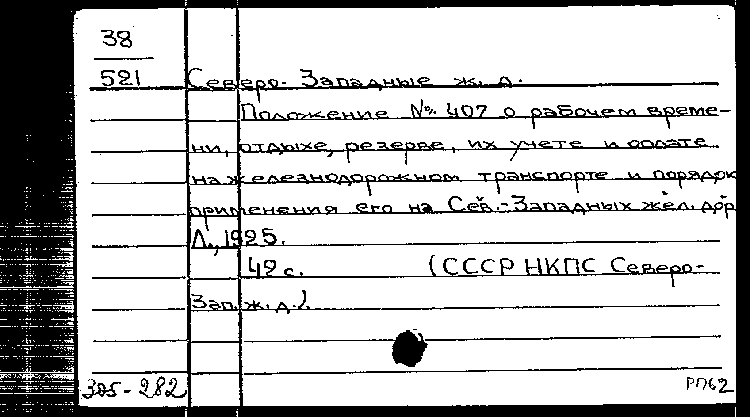 38
521 Северо-Западные ж. д.
Положение № 407 о рабочем време-
ни, отдыхе, резерве, их учете и оплате
на железнодорожном транспорте и порядок
применения его на Сев.-Западных жел. дор
Л., 1925.
42 с. (СССР НКПС Северо-
Зап. ж. д.).
305-282 РП62